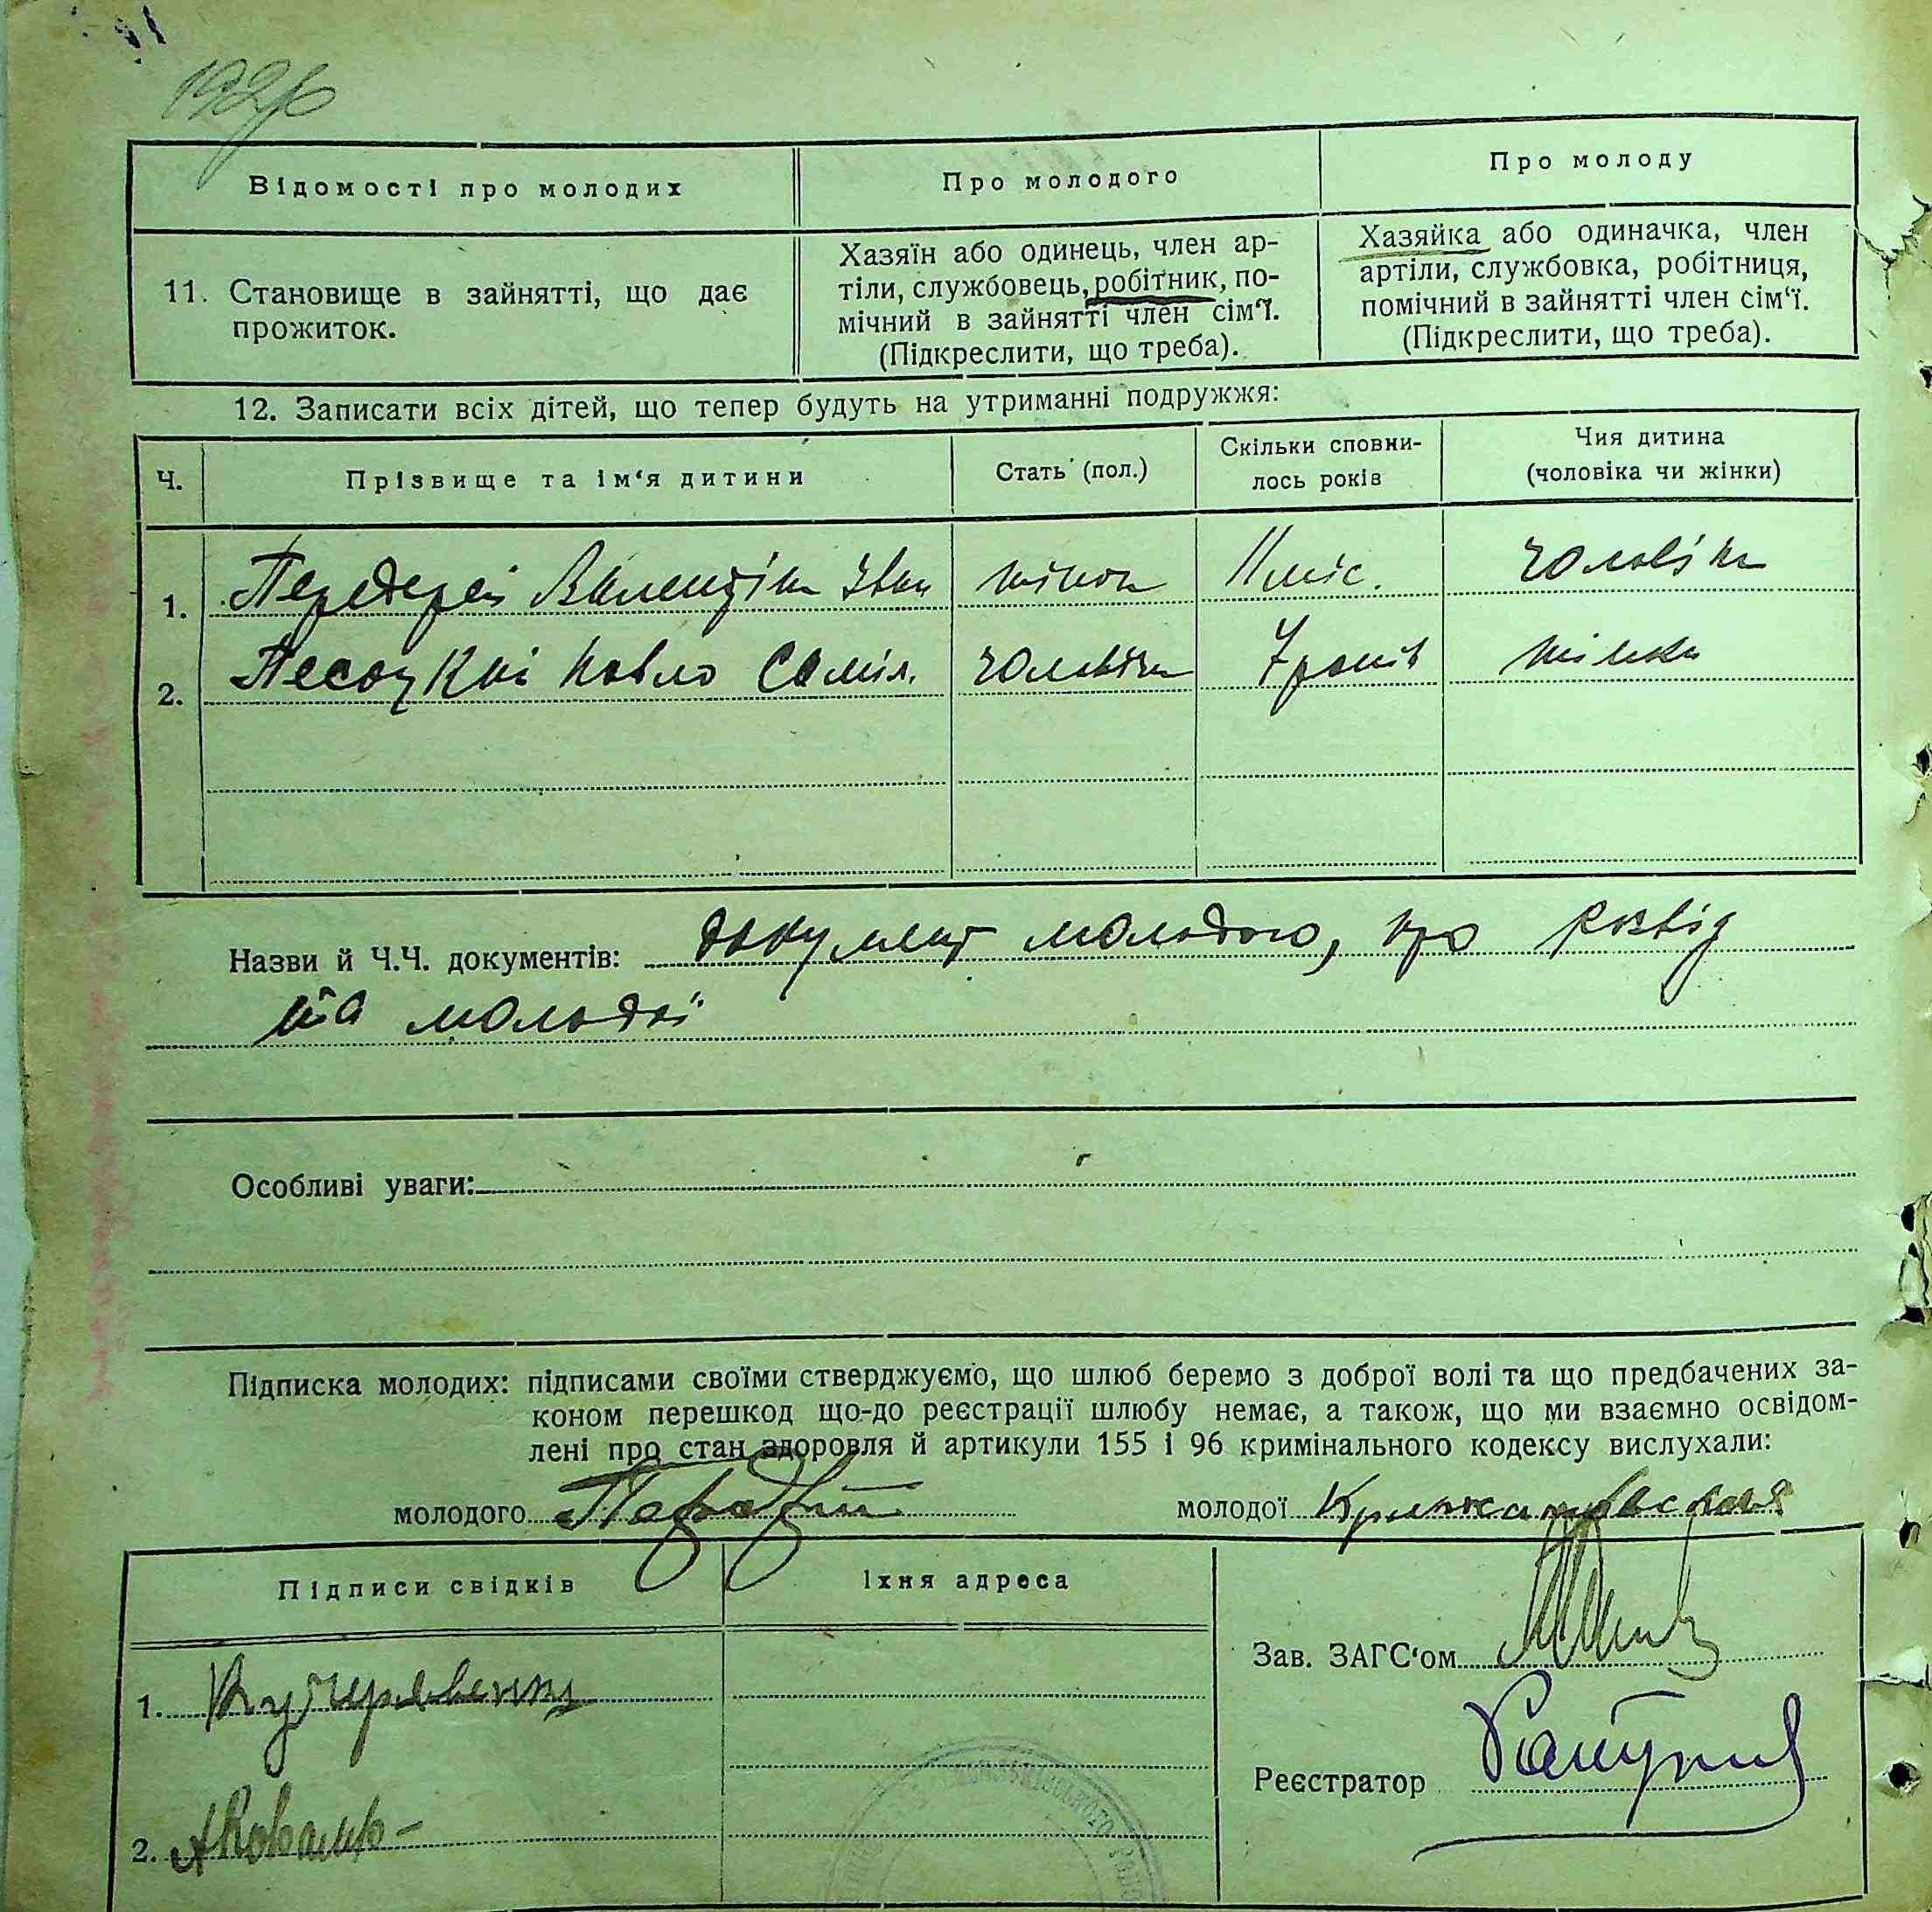 192
Відомості про молодих
Про молодого
Про молоду
11. Становище в зайнятті, що дає
прожиток.
Хазяїн або одинець, член ар-
тіли, службовець, робітник, по-
мічний в зайнятті член сім‘ї.
(Підкреслити, що треба).
Хазяйка або одиначка, член
артіли, службовка, робітниця,
помічний в зайнятті член сім‘ї.
(Підкреслити, що треба).
12. Записати всіх дітей, що тепер будуть на утриманні подружжя:
Ч.
Прізвище та ім‘я дитини
Стать (пол.)
Скільки сповни-
лось років
Чия дитина
(чоловіка чи жінки)
1. Передерей Валентіна Іван жіноч 11 міс. чоловіка
2. Песоцкиі Павло Саміл. чоловіч 7 років жінки
Назви й Ч.Ч. документів: документ молодого, про розвід
та молодої
Особливі уваги:
Підписка молодих: підписами своїми стверджуємо, що шлюб беремо з доброї волі та що предбачених за-
коном перешкод що-до реєстрації шлюбу немає, а також, що ми взаємно освідом-
лені про стан здоровля й артикули 155 і 96 кримінального кодексу вислухали:
молодого
молодої Кржжановская
Підписи свідків
Їхня адреса
1. Кучерявенко
2. А Коваль
Зав. ЗАГС‘ом
Реєстратор